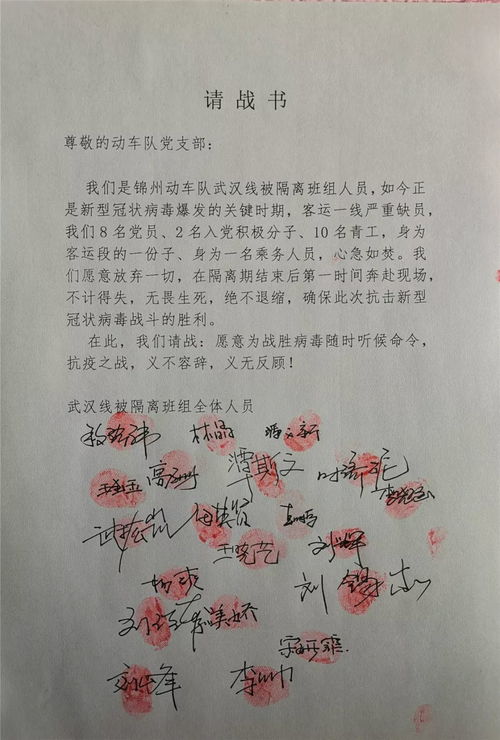 请战书
尊敬的动车队党支部：
我们是锦州动车队武汉线被隔离班组人员，如今正
是新型冠状病毒爆发的关键时期，客运一线严重缺员，
我们8名党员、2名入党积极分子、10名青工，身为
客运段的一份子、身为一名乘务人员，心急如焚。我
们愿意放弃一切，在隔离期结束后第一时间奔赴现场，
不计得失，无畏生死，绝不退缩，确保此次抗击新型
冠状病毒战斗的胜利。
在此，我们请战：愿意为战胜病毒随时听候命令，
抗疫之战，义不容辞，义无反顾！
武汉线被隔离班组全体人员
林晶
王晓艺
刘辉
杨爽